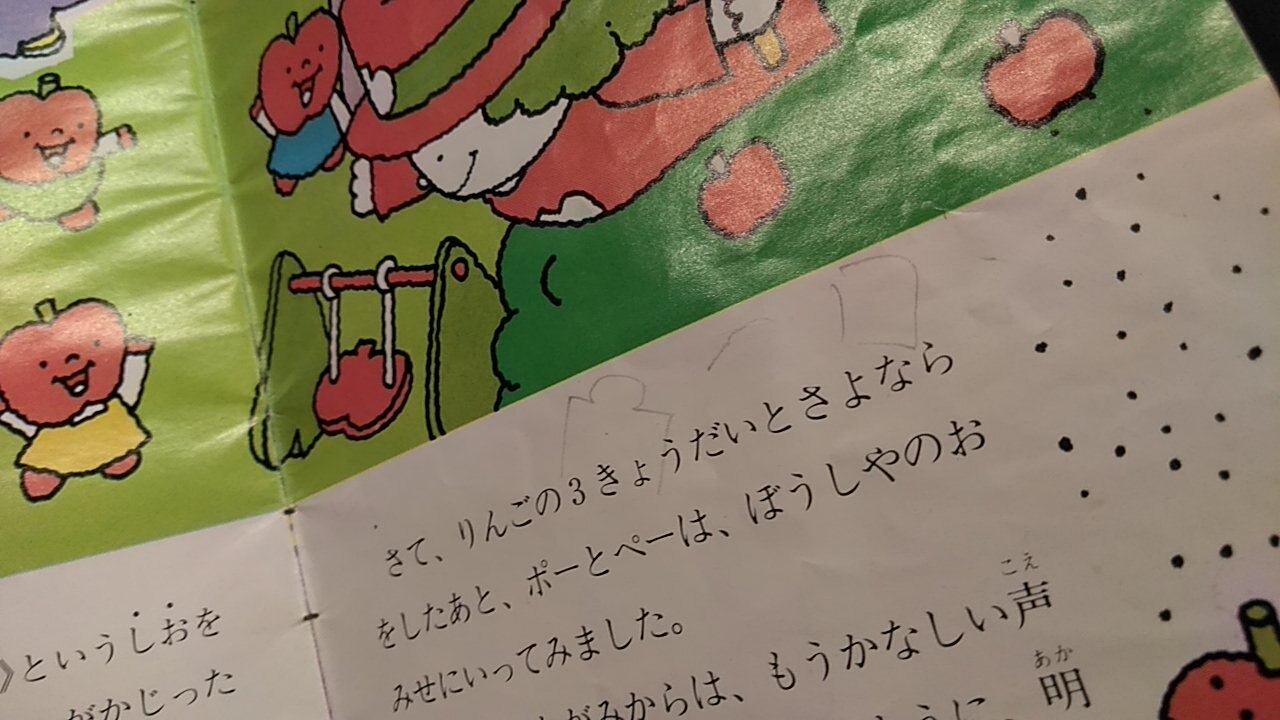 》というしおを
がかじった
さて、りんごの3きょうだいとさよなら
をしたあと、ポーとペーは、ぼうしやのお
みせにいってみました。
がみからは、もうかなしい声
こえ
ように、明
あか